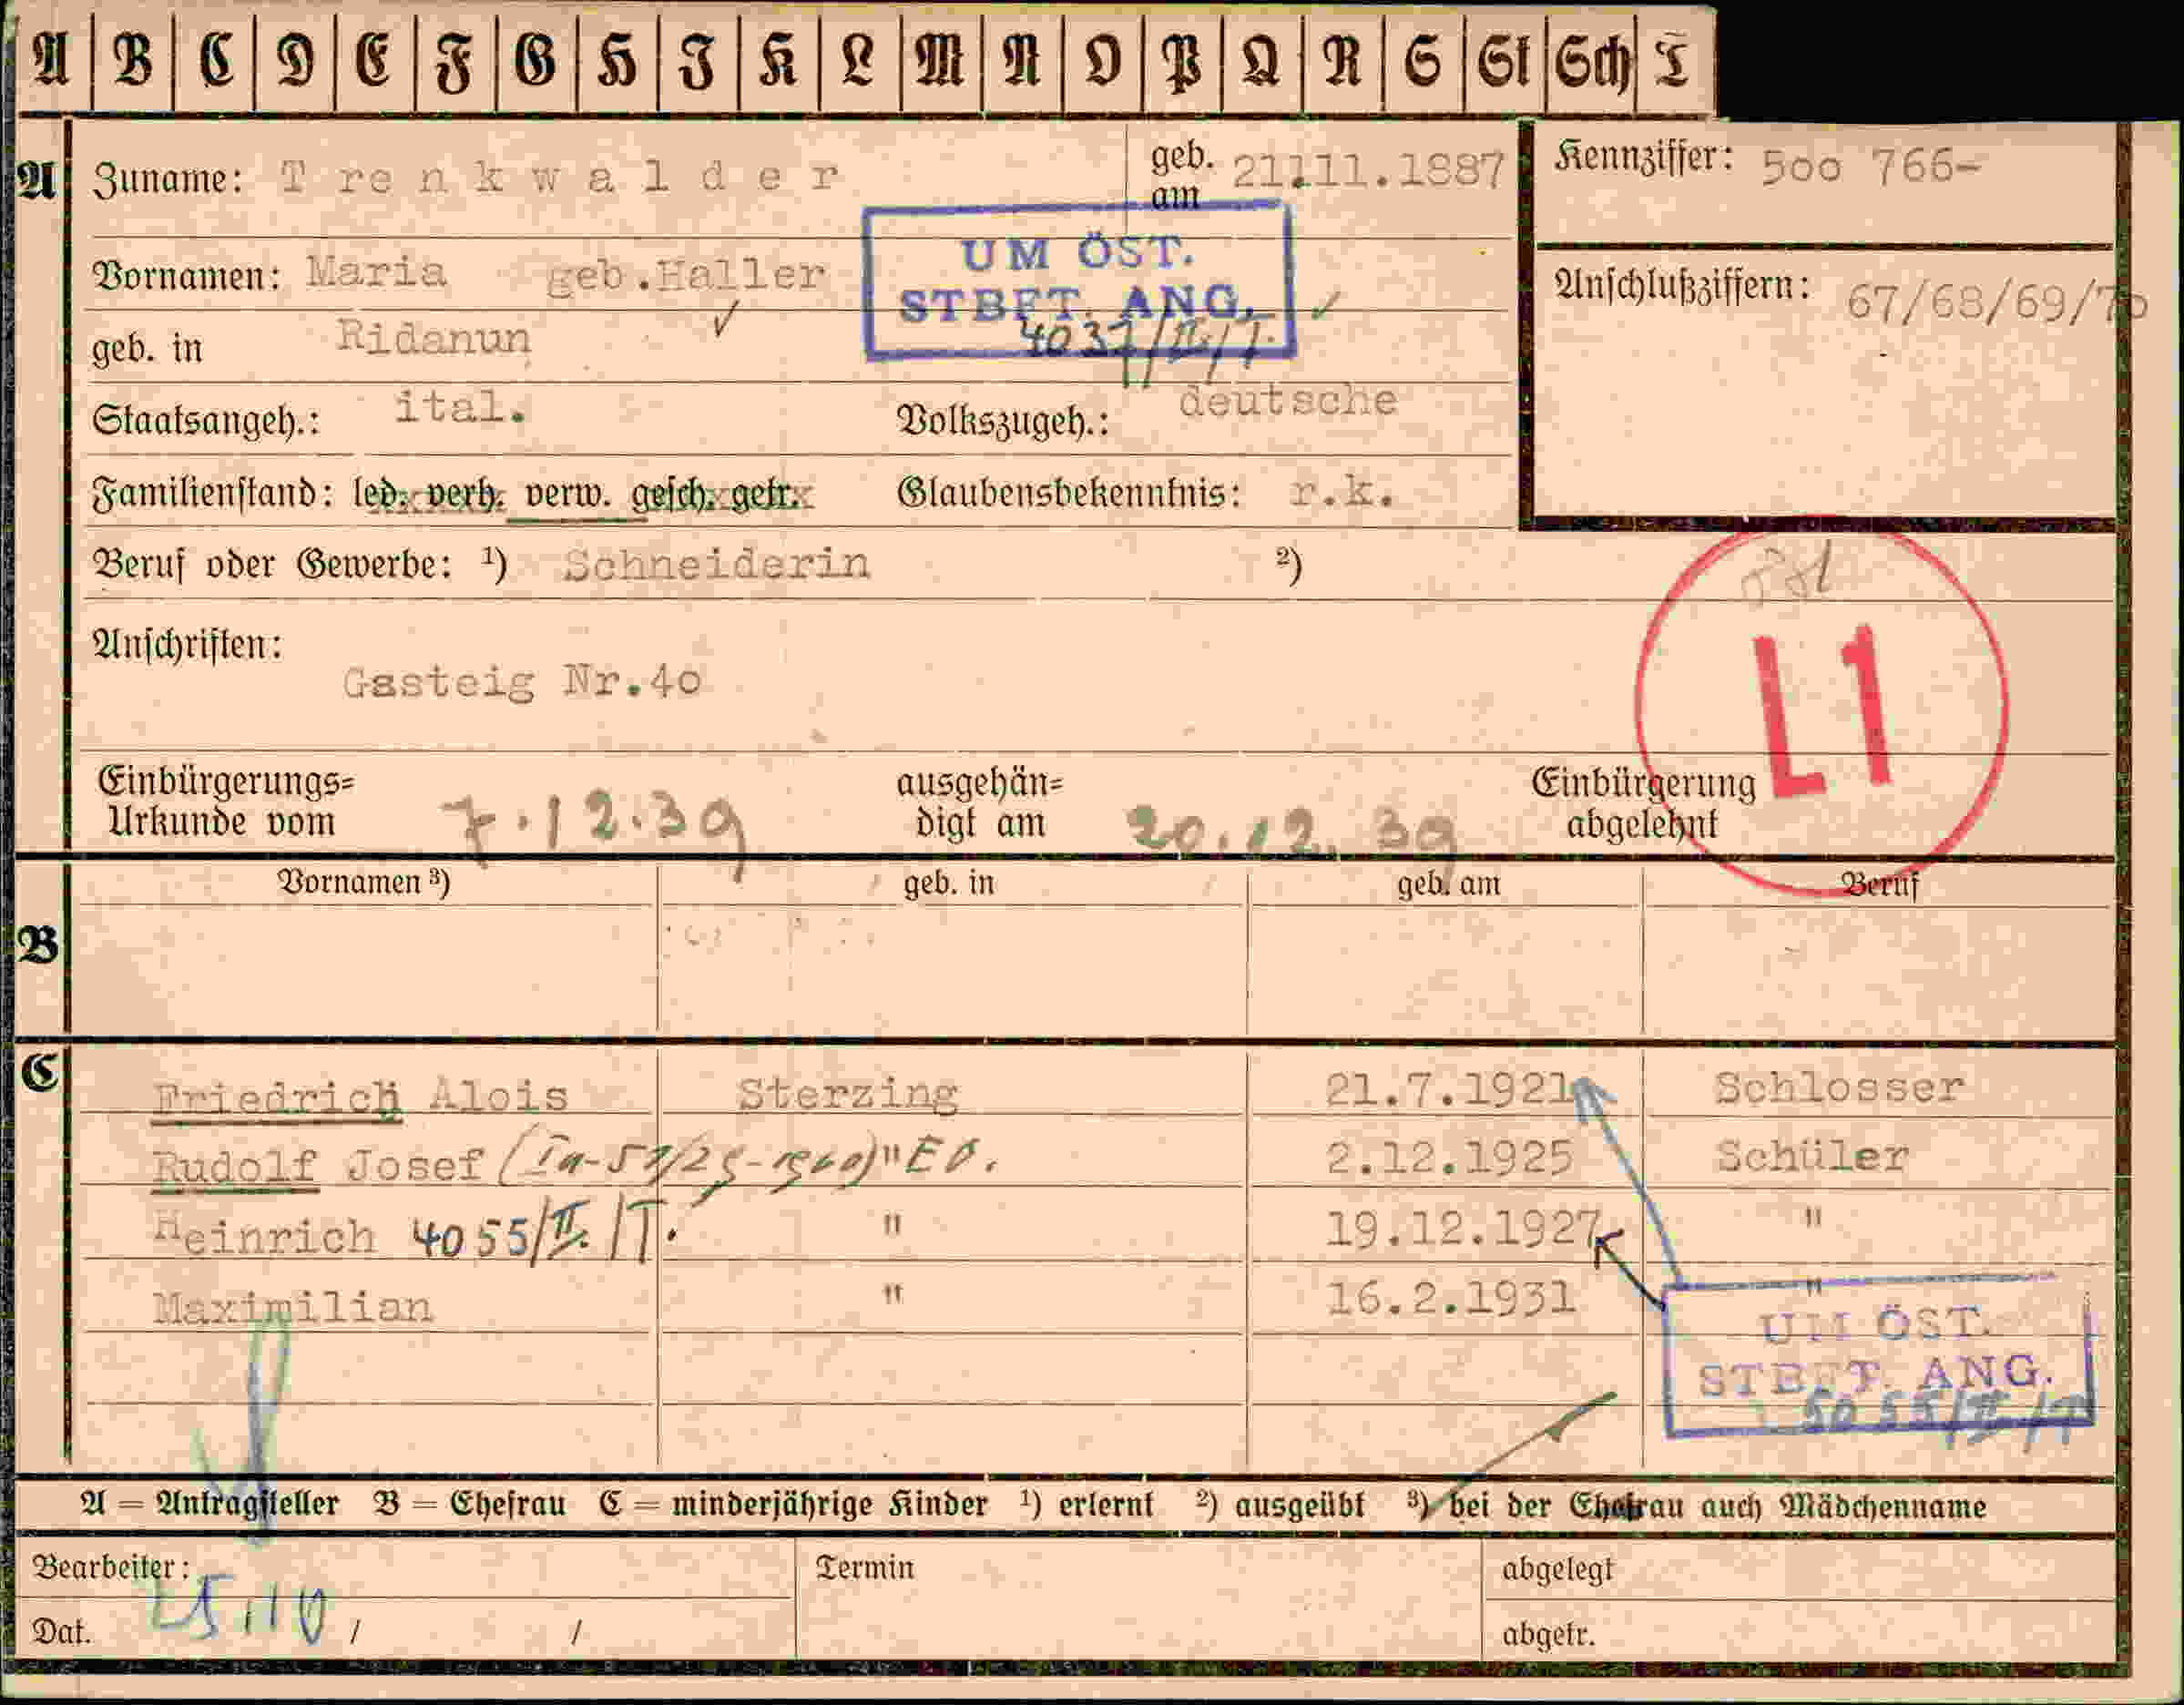 A B C D E F G H J K L M N O P Q R S St Sch T
A Zuname: Trenkwalder geb. am 21.11.1887 Kennziffer: 5oo 766-
Vornamen: Maria geb.Haller
UM ÖST.
STBFT. ANG.
4037/II/T.
Anschlußziffern: 67/68/69/7o
geb. in Ridanun
Staatsangeh.: ital. Volkszugeh.: deutsche
Familienstand: led. verh. verw. gesch. getr. Glaubensbekenntnis: r.k.
Beruf oder Gewerbe: ¹) Schneiderin ²)
Anschriften:
Gasteig Nr.4o
L1
Einbürgerungs= Urkunde vom 7.12.39 ausgehän= digt am 20.12.39 Einbürgerung abgelehnt
Vornamen ³) geb. in geb. am Beruf
B
C
Friedrich Alois Sterzing 21.7.1921 Schlosser
Rudolf Josef " 2.12.1925 Schüler
Heinrich 4055/II./T. " 19.12.1927 "
Maximilian " 16.2.1931 "
UM ÖST.
STBFT. ANG.
5055/II/T
A = Antragsteller B = Ehefrau C = minderjährige Kinder ¹) erlernt ²) ausgeübt ³) bei der Ehefrau auch Mädchenname
Bearbeiter: Termin abgelegt
Dat. 25.10 / / abgetr.